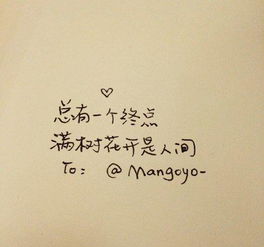 总有一个终点
满树花开是人间
To: @Mangoyo-